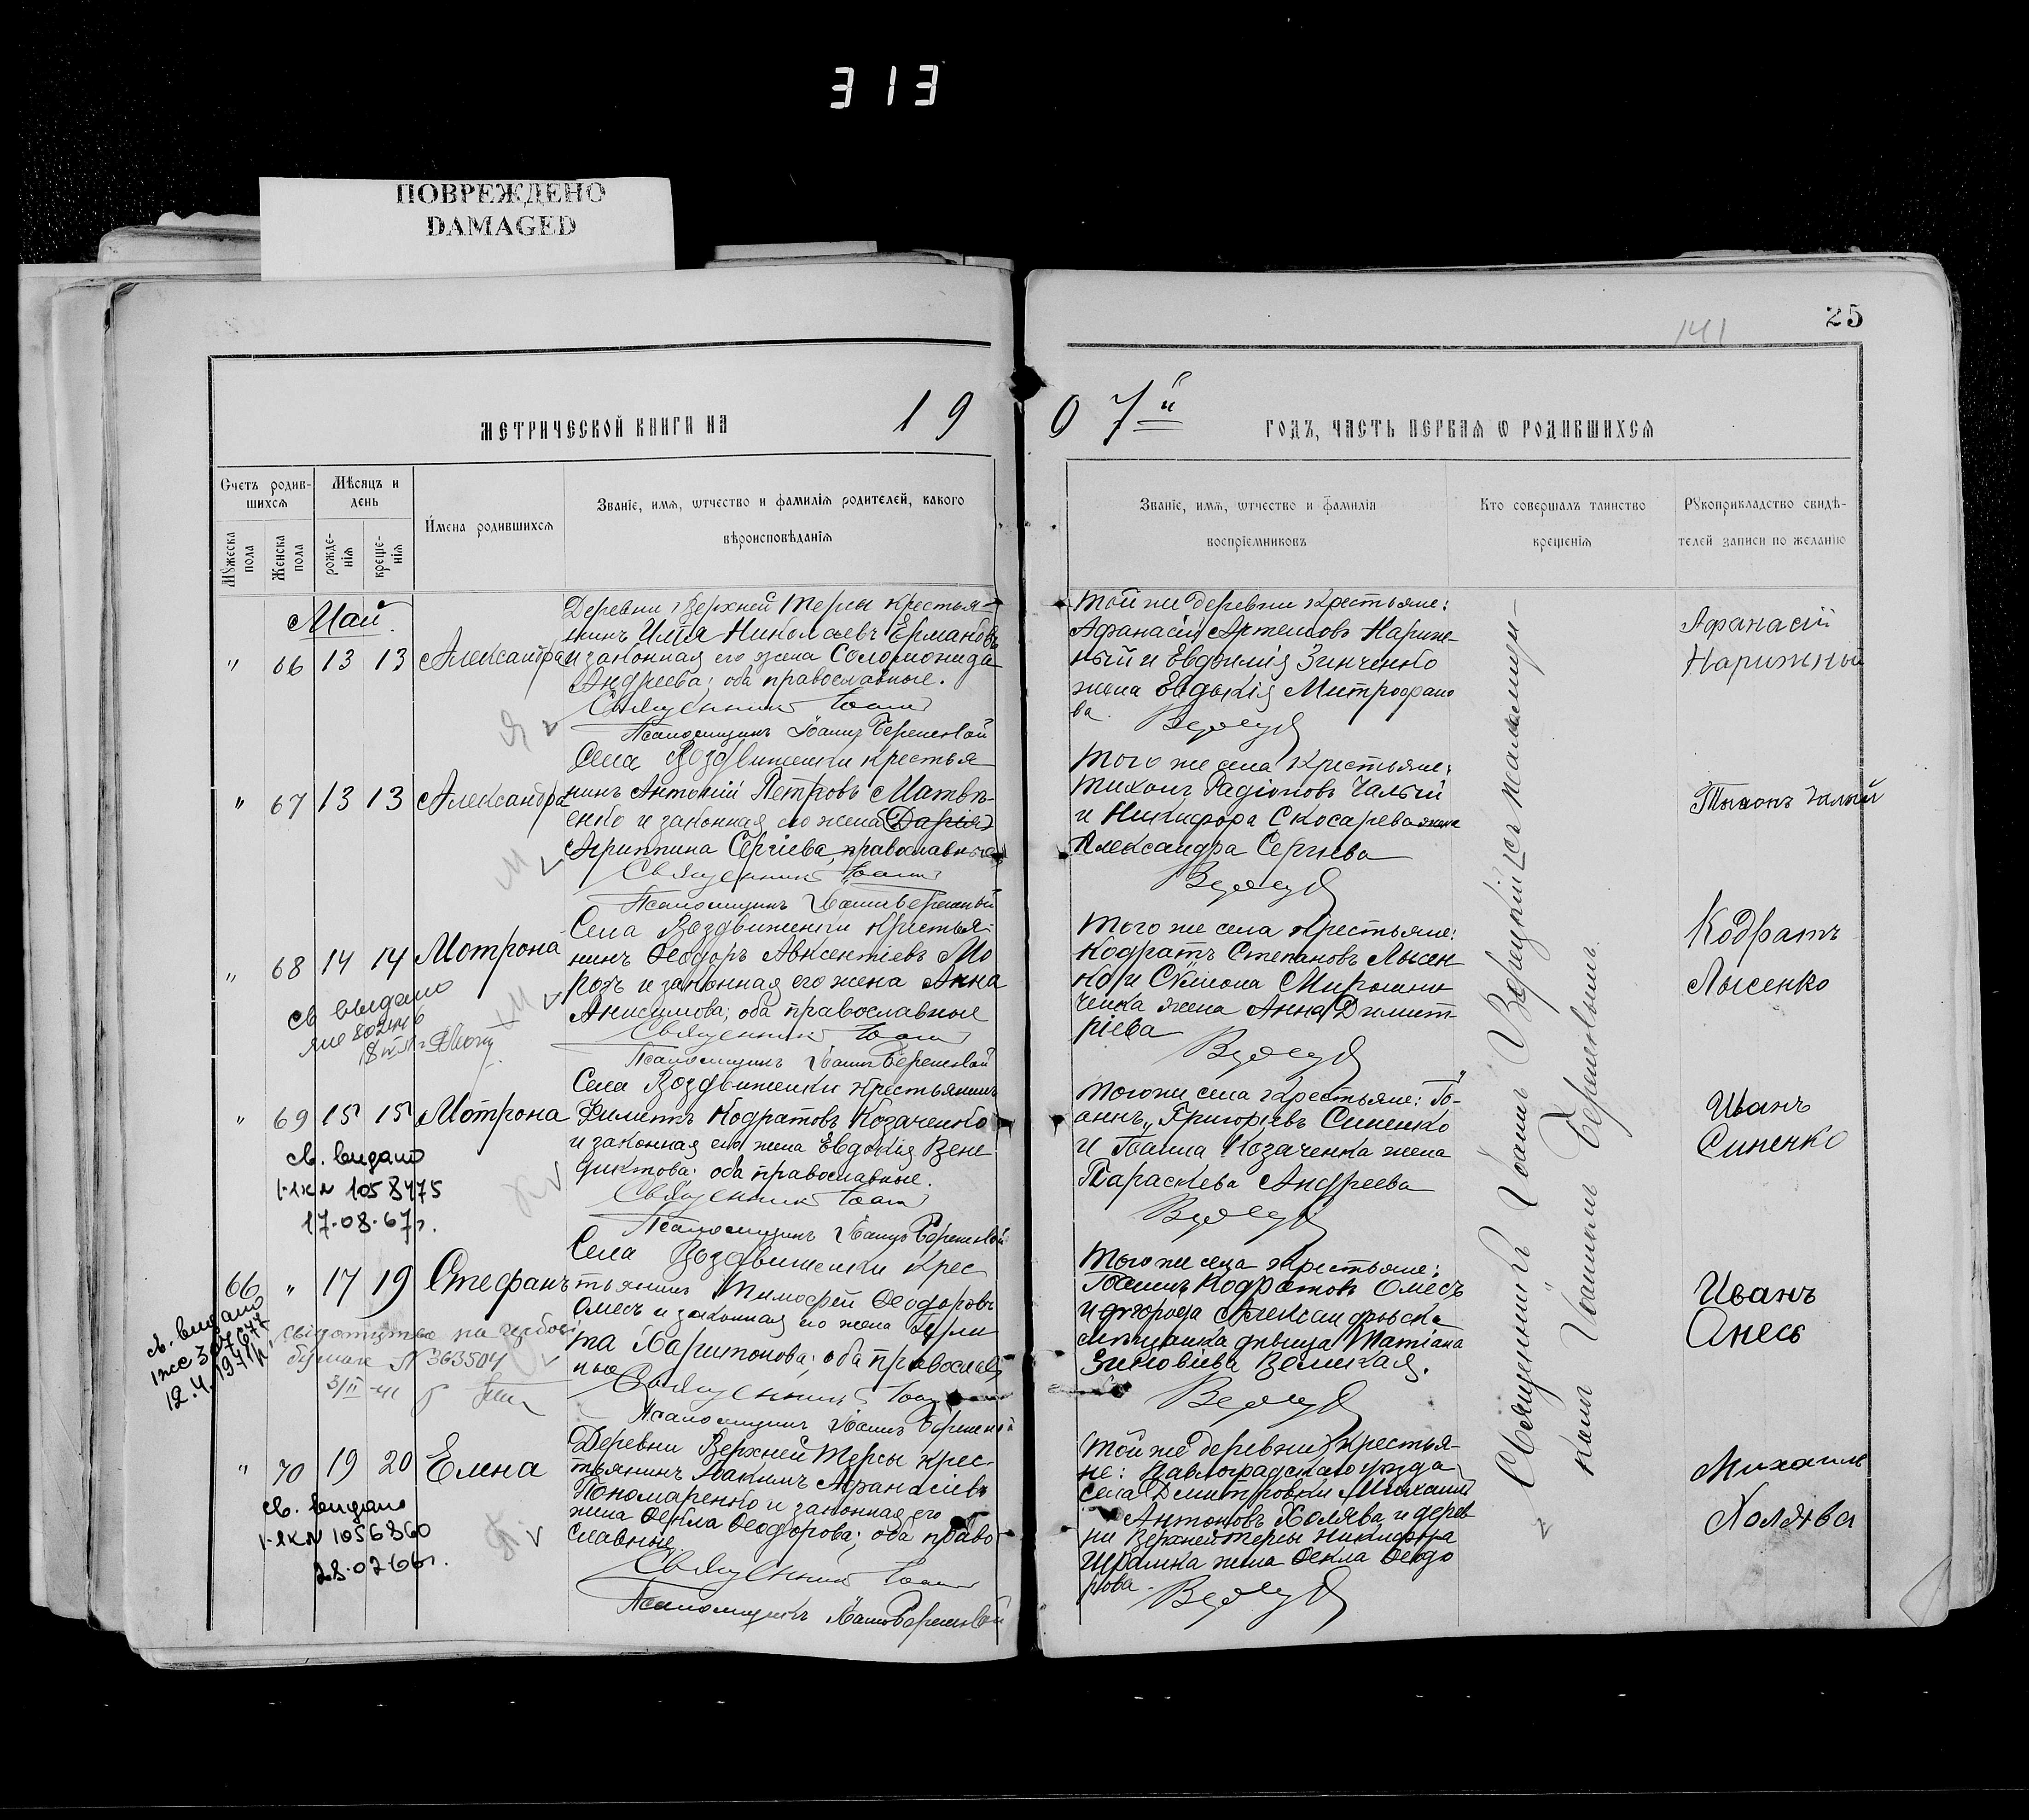 313
ПОВРЕЖДЕНО
DAMAGED
25
141
МЕТРИЧЕСКОЙ КНИГИ НА 19
07й ГОДЪ, ЧАСТЬ ПЕРВАЯ Ѡ РОДИВШИХСЯ
Счетъ родив-
шихся
Мꙋжеска пола
Женска пола
Мѣсяцъ и
день
рожде-
нія
креще-
нія
Имена родившихся
Званіе, имя, ѡтчество и фамилія родителей, какого
вѣроисповѣданія
Званіе, имя, ѡтчество и фамилія
воспріемниковъ
Кто совершалъ таинство
крещенія
Рꙋкоприкладство свидѣ-
телей записи по желанію
Май.
" 66 13 13 Александра
Деревни Верхней Терсы крестья-
нинъ Илія Николаевъ Ермаковъ
и законная его жена Соломонида
Андреева; оба православные.
Священникъ Іоаннъ
Псаломщикъ Іоаннъ Береговой
Той же деревни крестьяне:
Афанасій Артемовъ Нариж-
ный и Евдокія Зинченко
жена Евдокія Митрофано
ва.
Афанасій
Нарижный
" 67 13 13 Александра
Села Воздвиженки крестья
нинъ Антоній Петровъ Матвѣ-
енко и законная его жена Дарья
Агриппина Сергіева, православные
Священникъ Іоаннъ
Псаломщикъ Іоаннъ Береговой
Того же села крестьяне:
Тихонъ Радіоновъ Чалый
и Никифора Скосарева жена
Александра Сергіева
Тихонъ Чалый
" 68 14 14 Мотрона
Села Воздвиженки крестья-
нинъ Ѳеодоръ Авксентіевъ Мо
розъ и законная его жена Анна
Анисимова; оба православные
Священникъ Іоаннъ
Псаломщикъ Іоаннъ Береговой
св выдано
Того же села крестьяне:
Кодратъ Степановъ Лысен
ко и Симона Мирошни
ченка жена Анна Димит-
ріева
Кодратъ
Лысенко
" 69 15 15 Мотрона
Села Воздвиженки крестьянинъ
Филиппъ Кодратовъ Козаченко
и законная его жена Евдокія Вене
диктова; оба православные.
Священникъ Іоаннъ
Псаломщикъ Іоаннъ Береговой
св. видано
1-як № 1058475
17.08.67г.
Того же села крестьяне: Іо-
аннъ Григоріевъ Синенко
и Іоанна Козаченка жена
Параскева Андреева
Иванъ
Синенко
66 " 17 19 Стефанъ
Села Воздвиженки крес
тьянинъ Тимофей Ѳеодоровъ
Онесь и законная его жена
Харитонова; оба православ
ные
Священникъ Іоаннъ
Псаломщикъ Іоаннъ Береговой
св. видано
бумаге № 363504
3/II-41
Того же села крестьяне:
Іоаннъ Кодратовъ Онесь
и города Александровска
мѣщанка дѣвица Татіана
Зиновіева Великая.
Иванъ
Онесь
" 70 19 20 Елена
Деревни Верхней Терсы крес-
тьянинъ Іакимъ Афанасіевъ
Пономаренко и законная его
жена Ѳекла Ѳеодорова; оба право
славные.
Священникъ Іоаннъ
Псаломщикъ Іоаннъ Береговой
св. видано
1-як № 1056860
28.02.66г.
Той же деревни крестья-
не: Павлоградскаго уѣзда
села Дмитровки Михаилъ
Антоновъ Холява и дерев
ни Верхней Терсы Никифора
Шрамка жена Ѳекла Ѳеодо
рова.
Михаилъ
Холява
Священникъ Іоаннъ съ псаломщи-
комъ Іоанномъ Береговымъ.